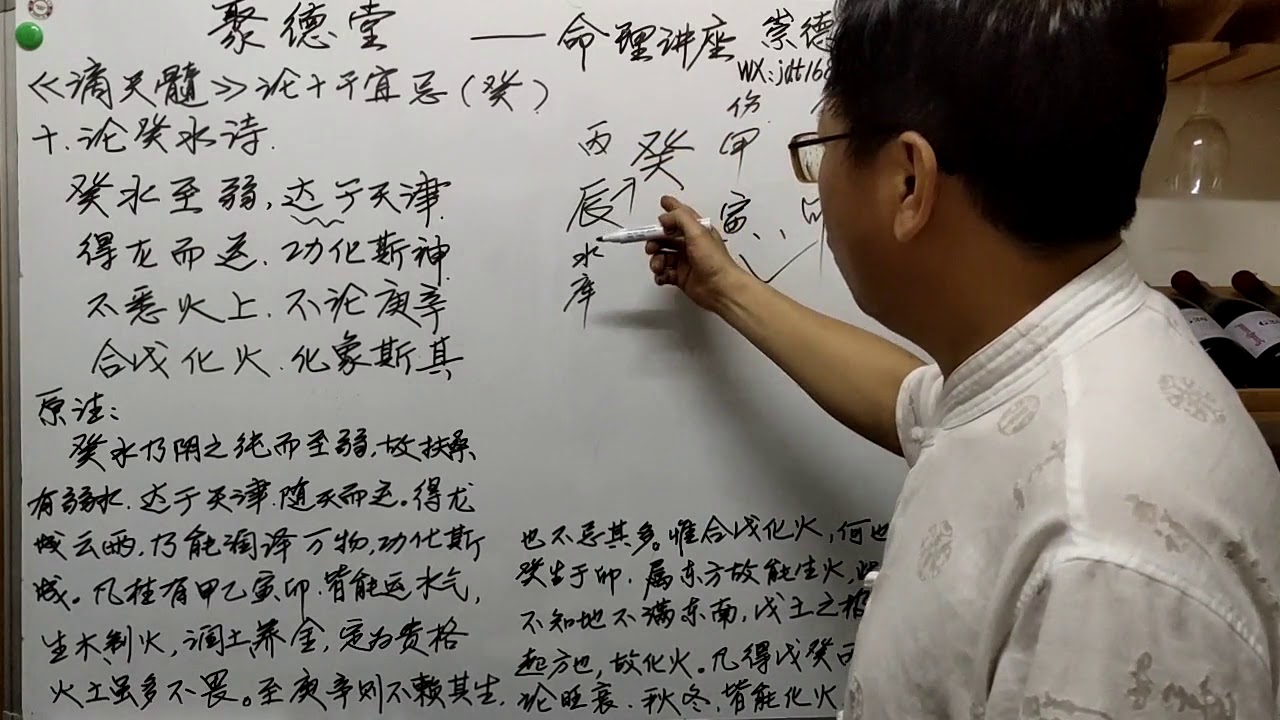 聚德堂 —— 命理讲座 崇德
WX:jdt168
《滴天髓》论十干宜忌(癸)
十.论癸水诗.
癸水至弱,达于天津.
得龙而运.功化斯神.
不愁火土.不论庚辛
合戊化火.化象斯真
伤
丙 癸 甲
辰 寅
水
库
原注:
癸水乃阴之纯而至弱,故扶桑
有弱水.达于天津.随天而运。得龙
成云雨,乃能润泽万物,功化斯
成。凡柱有甲乙寅卯.皆能运水气,
生木制火,润土养金,定为贵格
火土虽多不畏。至庚辛则不赖其生.
也不忌其多。惟合戊化火,何也
癸生于卯.属东方故能生火,
不知地不满东南,戊土之
起方也,故化火。凡得戊癸
论旺衰.秋冬,皆能化火